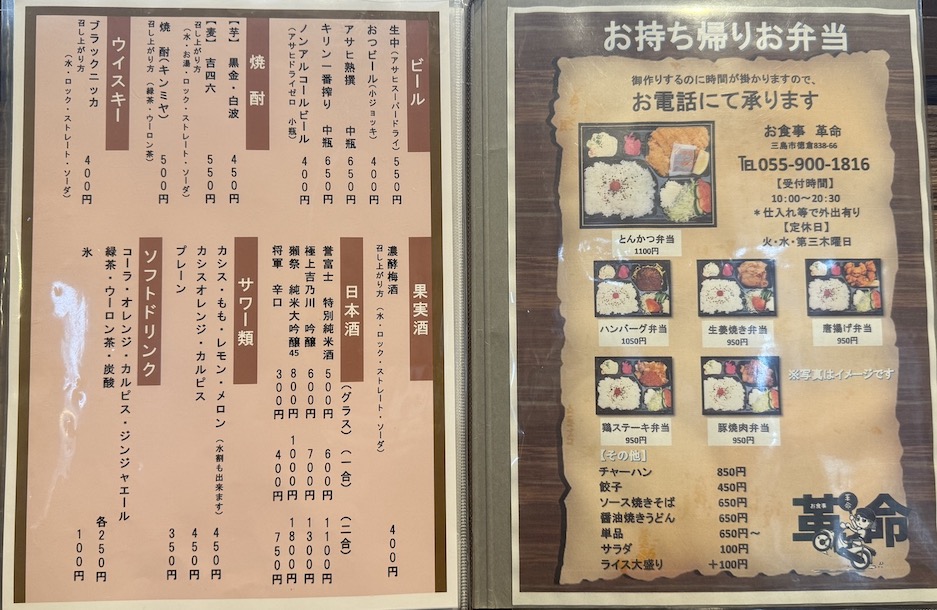 ビール
生中(アサヒスーパードライ) 550円
おつビール(小ジョッキ) 400円
アサヒ熟撰 中瓶 650円
キリン一番搾り 中瓶 650円
ノンアルコールビール 400円
(アサヒドライゼロ 小瓶)
焼酎
【芋】 黒金・白波 450円
【麦】 吉四六 550円
召し上がり方
(水・お湯・ロック・ストレート・ソーダ)
焼酎(キンミヤ) 500円
召し上がり方 (緑茶・ウーロン茶)
ウイスキー
ブラックニッカ 400円
召し上がり方
(水・ロック・ストレート・ソーダ)
果実酒
濃酵梅酒 400円
召し上がり方 (水・ロック・ストレート・ソーダ)
日本酒
(グラス) (一合) (二合)
誉富士 特別純米酒 500円 600円 1100円
極上吉乃川 吟醸 600円 700円 1300円
獺祭 純米大吟醸45 800円 1000円 1800円
将軍 辛口 300円 400円 750円
サワー類
カシス・もも・レモン・メロン (水割も出来ます) 450円
カシスオレンジ・カルピス 450円
プレーン 350円
ソフトドリンク
コーラ・オレンジ・カルピス・ジンジャエール
緑茶・ウーロン茶・炭酸 各250円
氷 100円
お持ち帰りお弁当
御作りするのに時間が掛かりますので、
お電話にて承ります
お食事 革命
三島市徳倉838-66
℡055-900-1816
【受付時間】
10:00～20:30
*仕入れ等で外出有り
【定休日】
火・水・第三木曜日
とんかつ弁当
1100円
ハンバーグ弁当
1050円
生姜焼き弁当
950円
唐揚げ弁当
950円
鶏ステーキ弁当
950円
豚焼肉弁当
950円
※写真はイメージです
【その他】
チャーハン 850円
餃子 450円
ソース焼きそば 650円
醤油焼きうどん 650円
単品 650円～
サラダ 100円
ライス大盛り +100円
お食事
革命
革命